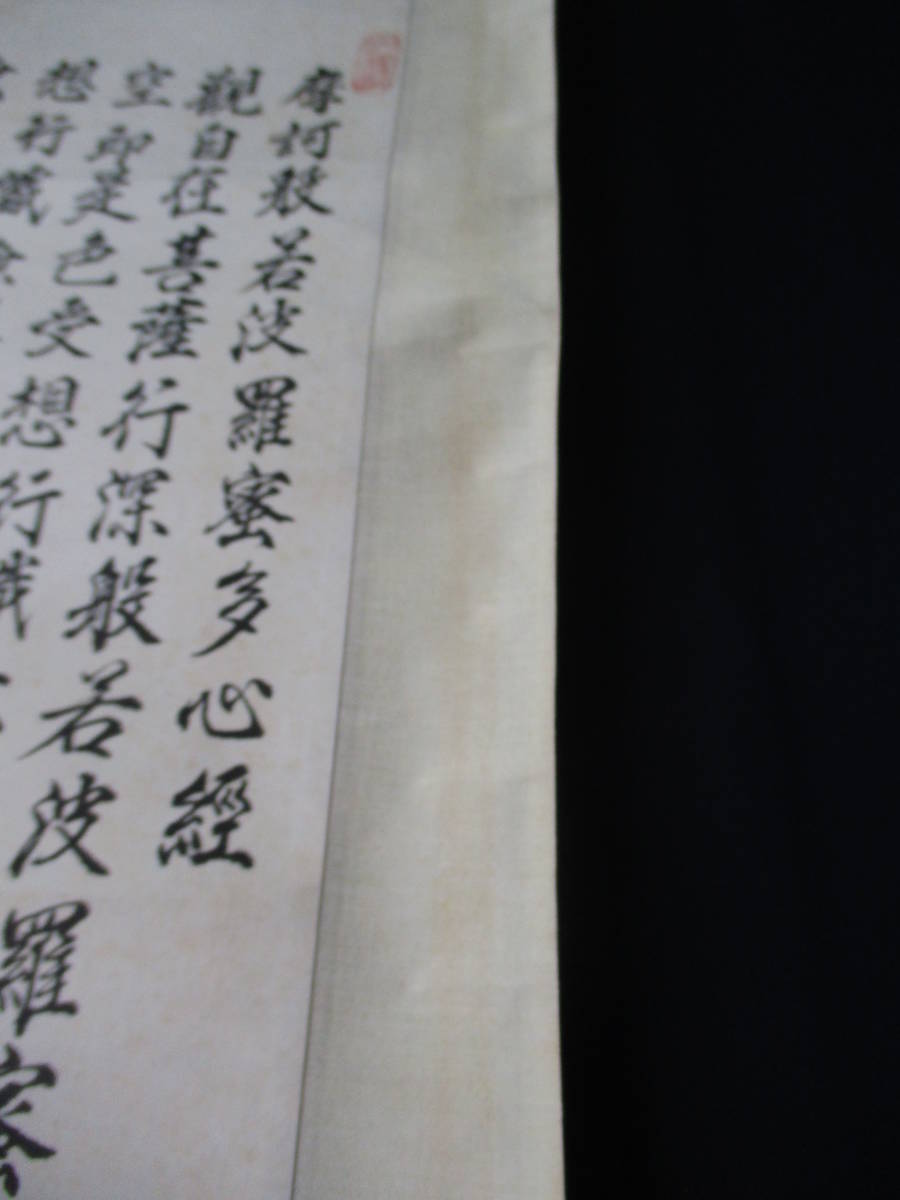 摩訶般若波羅蜜多心經
觀自在菩薩行深般若波羅蜜
空即是色受想行識
想行識